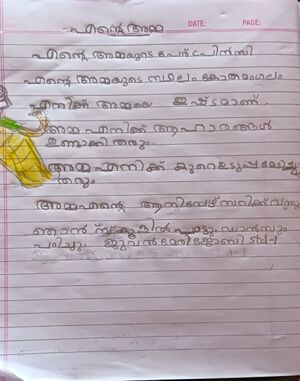 എന്റെ അമ്മ
DATE: PAGE:
എന്റെ അമ്മയുടെ പേര് പ്രിൻസി
എന്റെ അമ്മയുടെ സ്ഥലം കോതമംഗലം
എനിക്ക് അമ്മയെ ഇഷ്ടമാണ്.
അമ്മ എനിക്ക് ആഹാരങ്ങൾ
ഉണ്ടാക്കി തരും.
അമ്മ എനിക്ക് കുറെ ഉടുപ്പ് മേടിച്ചു
തരും.
അമ്മ എന്റെ
ഞാൻ സ്കൂളിൽ പാട്ടും ഡാൻസും
പഠിച്ചു. ജുവൻ മേരി ജോബി std-1